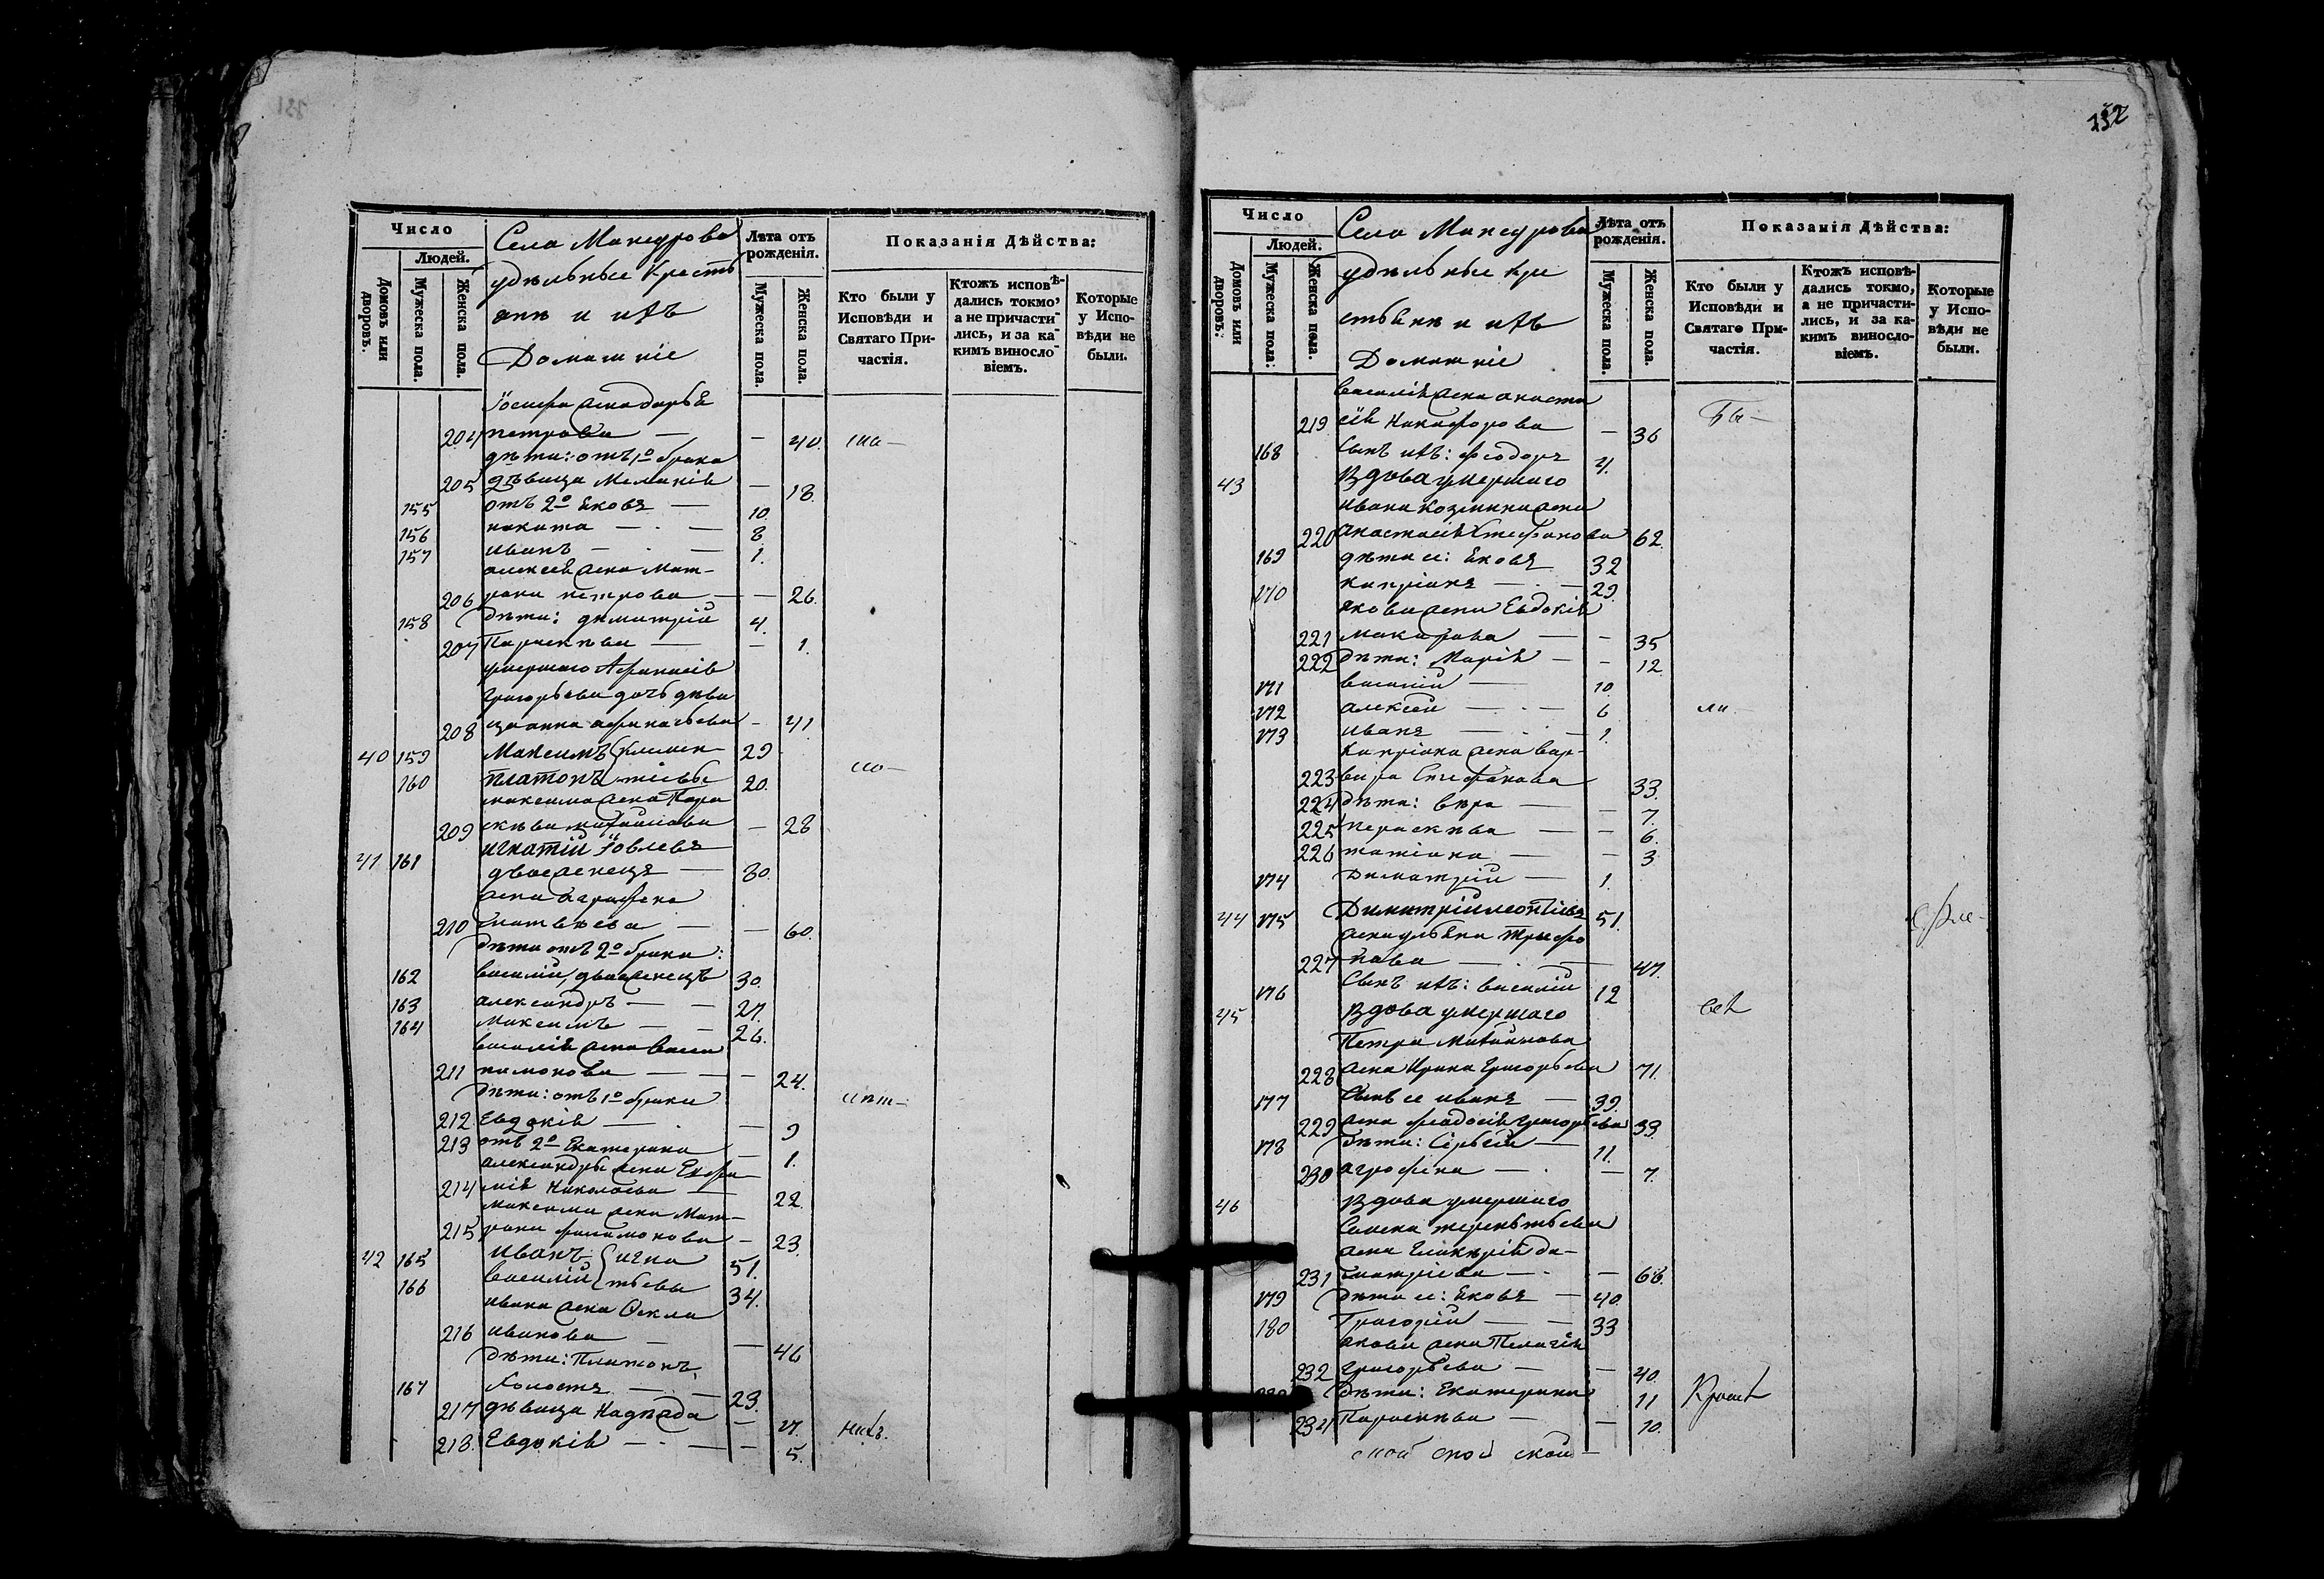 Число
Людей.
Домовъ или дворовъ.
Мужеска пола.
Женска пола.
Села Македрова
удѣльные крестъ
яне и ихъ
Домашніе
Лѣта отъ рожденія.
Мужеска пола.
Женска пола.
Показанія Дѣйства:
Кто были у Исповѣди и Святаго Причастія.
Ктожъ исповѣдались токмо, а не причастились, и за какимъ винословіемъ.
Которые у Исповѣди не были.
Іосифа жена дарья
204 петрова — — 40.
дѣти: отъ 1º брака
205 дѣвица Меланія — 18.
155 отъ 2º Яковъ — 10.
156 никита — 8
157 иванъ — 1.
алексея жена Мат-
206 рона петрова — — 26.
158 дѣти: димитрій 4.
207 Параскева — — 1.
умершаго Афанасія
григорьева дочь дѣви
208 ца анна афанасьева — 41
40 159 Максимъ Климен- 29
160 Платонъ тіевы 20.
максима жена Пара
209 скева михайлова — 28
игнатій Іовлевъ
41 161 двоеженецъ — 80.
жена Аграфена
210 матвѣева — — 60.
дѣти отъ 2º брака:
162 василій, двоеженецъ 30.
163 александръ — — 27.
164 Максимъ — — 26.
василія жена васси
211 лимонова — — — 24.
дѣти: отъ 1º брака
212 Евдокія — — 9
213 отъ 2º Екатерина — 1.
александра жена Евфи
214 мія Николаева — 22.
Максима жена Мат-
215 рона филимонова — 23.
42 165 Иванъ игна 51.
166 василій тьевы 34.
ивана жена Ѳекла
216 иванова — — 46
дѣти: Платонъ,
167 Холостъ — 23.
217 дѣвица Надежда — 17.
218. Евдокія — — — 5.
232
Число
Людей.
Домовъ или дворовъ.
Мужеска пола.
Женска пола.
Села Македрова
удѣльные кре
стьяне и ихъ
Домашніе
Лѣта отъ рожденія.
Мужеска пола.
Женска пола.
Показанія Дѣйства:
Кто были у Исповѣди и Святаго Причастія.
Ктожъ исповѣдались токмо, а не причастились, и за какимъ винословіемъ.
Которые у Исповѣди не были.
василія жена анаста
219 сія Никифорова — 36
168 сынъ ихъ: феодоръ 4.
43 Вдова умершаго
ивана козмина жена
220 анастасія Стефанова 62.
169 дѣти ея: Яковъ 32
170 кипріанъ — 29.
якова жена Евдокія
221 макарова — — 35
222 дѣти: Марія — — 12
171 василій — 10.
172 алексей — 6
173 иванъ — 1.
Кипріана жена вар-
223 вара Стефанова 33.
224 дѣти: вѣра — — 7.
225 параскева — — 6.
226 татіана — — 3
174 Димитрій — 1.
44 175 Димитрій леонтіевъ 51.
жена ульяна Трифо
227 нова — — 47.
176 Сынъ ихъ: василій 12
45 Вдова умершаго
Петра Михайлова
228 жена Ирина Григорьева 71.
177 Сынъ ея иванъ — 39.
229 жена феодосія григорьева 33
178 дѣти: Сергій — 11.
230 агрофена — — 7.
46 Вдова умершаго
Семена терентьева
жена Гликерія ди-
231 митріева — — 66.
179 дѣти ея: Яковъ — 40.
180 Григорій — — 33
якова жена Пелагія
232 Григорьева — — 40.
дѣти: Екатерина 11
234 Параскева — — 10.